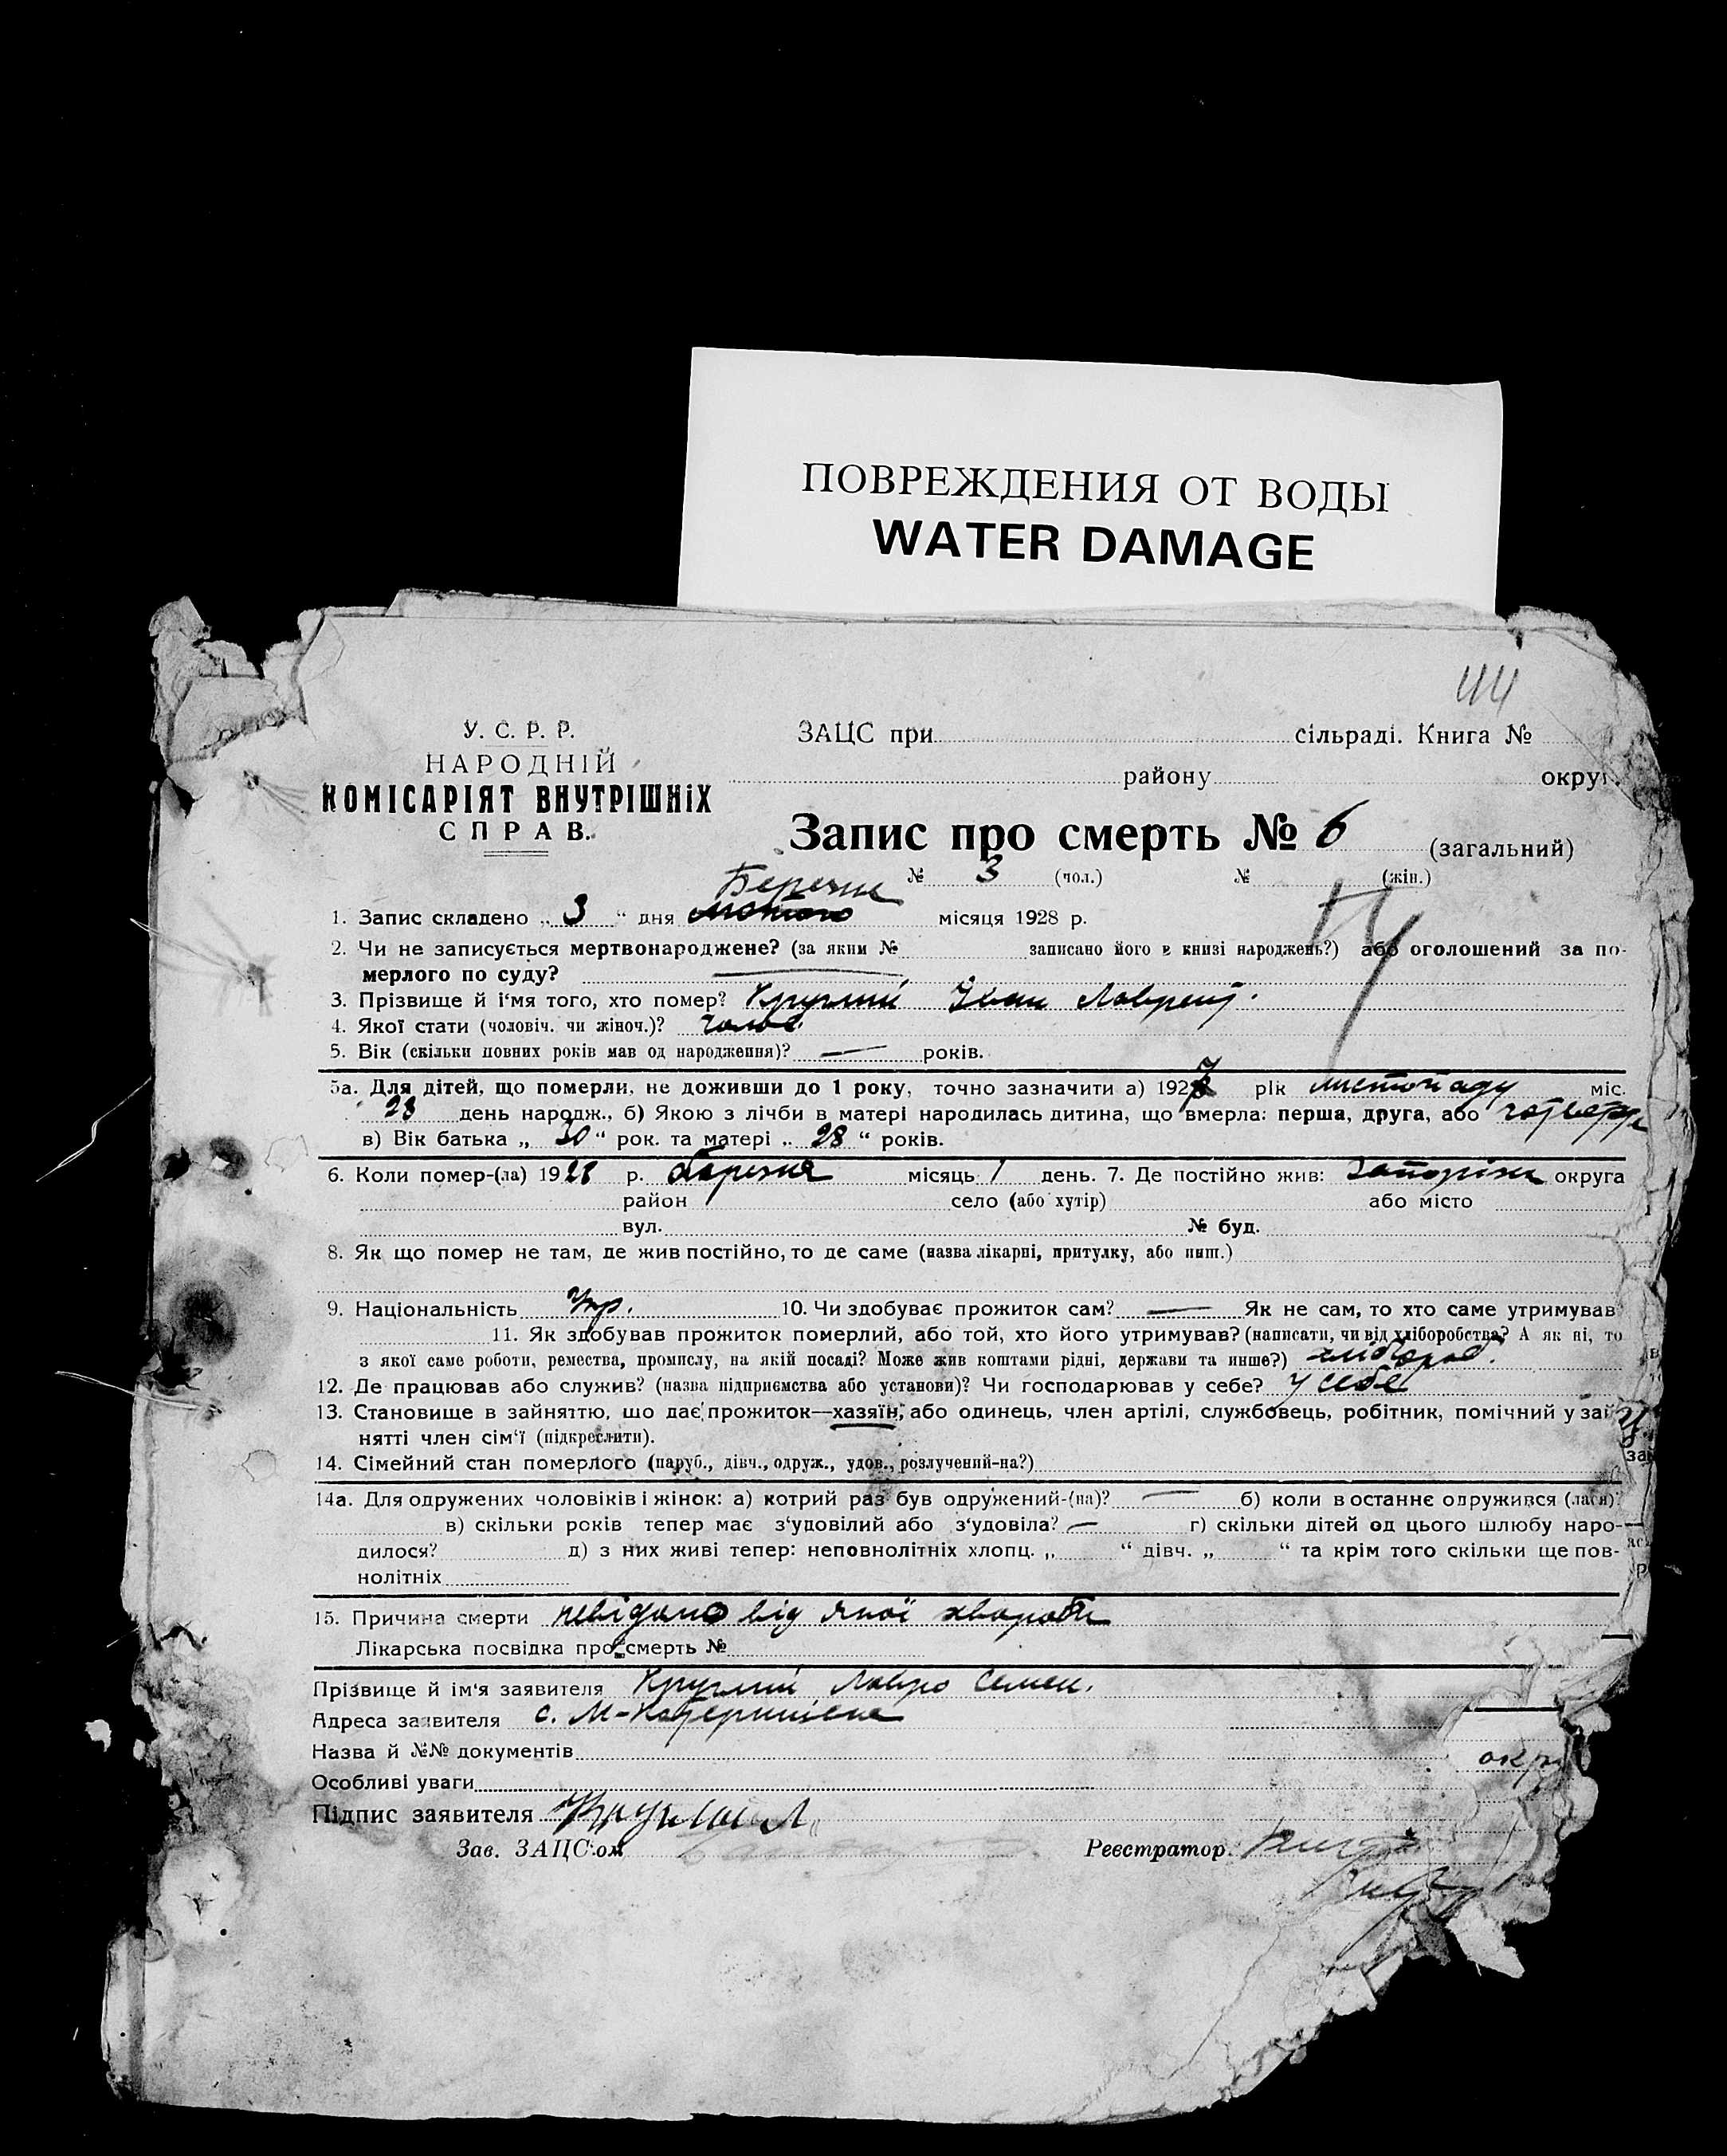 ПОВРЕЖДЕНИЯ ОТ ВОДЫ
WATER DAMAGE
44
У. С. Р. Р.
НАРОДНІЙ
КОМІСАРІЯТ ВНУТРІШНіХ
СПРАВ.
ЗАЦС при сільраді. Книга №
району округ
Запис про смерть № 6 (загальний)
№ 3 (чол.) № (жін.)
Березня
1. Запис складено „ 3 “ дня лютого місяця 1928 р.
2. Чи не записується мертвонароджене? (за яким № записано його в книзі народжень?) або оголошений за по-
мерлого по суду?
3. Прізвище й і'мя того, хто помер? Круглий Іван Лаврент.
4. Якої стати (чоловіч. чи жіноч.)? чолов.
5. Вік (скільки повних років мав од народження)? — років.
5а. Для дітей, що померли, не доживши до 1 року, точно зазначити а) 1927 рік листопаду міс.
28 день народж., б) Якою з лічби в матері народилась дитина, що вмерла: перша, друга, або
в) Вік батька „ 30 “ рок. та матері „ 28 “ років.
6. Коли помер-(ла) 1928 р. березня місяць 1 день. 7. Де постійно жив: Запоріжж округа
район село (або хутір) або місто
вул. № буд.
8. Як що помер не там, де жив постійно, то де саме (назва лікарні, притулку, або инш.)
9. Національність Укр. 10. Чи здобуває прожиток сам? — Як не сам, то хто саме утримував?
11. Як здобував прожиток померлий, або той, хто його утримував? (написати, чи від хліборобства? А як ні, то
з якої саме роботи, ремества, промислу, на якій посаді? Може жив коштами рідні, держави та инше?) хлібороб.
12. Де працював або служив? (назва підприємства або установи)? Чи господарював у себе? у себе
13. Становище в зайняттю, що дає прожиток—хазяїн, або одинець, член артілі, службовець, робітник, помічний у зай-
нятті член сім'ї (підкреслити).
14. Сімейний стан померлого (паруб., дівч., одруж., удов., розлучений-на?)
14а. Для одружених чоловіків і жінок: а) котрий раз був одружений-(на)? — б) коли в останнє одружився (лася)?
в) скільки років тепер має з'удовілий або з'удовіла? — г) скільки дітей од цього шлюбу наро-
дилося? д) з них живі тепер: неповнолітніх хлопц. „ “ дівч. „ “ та крім того скільки ще пов-
нолітніх
15. Причина смерти невідомо від якої хвороби
Лікарська посвідка про смерть №
Прізвище й ім'я заявителя Круглий Лавро Семен.
Адреса заявителя с. М-Катеринівка
Назва й №№ документів
окр
Особливі уваги
Підпис заявителя Круглий Л
Зав. ЗАЦС'ом Реєстратор